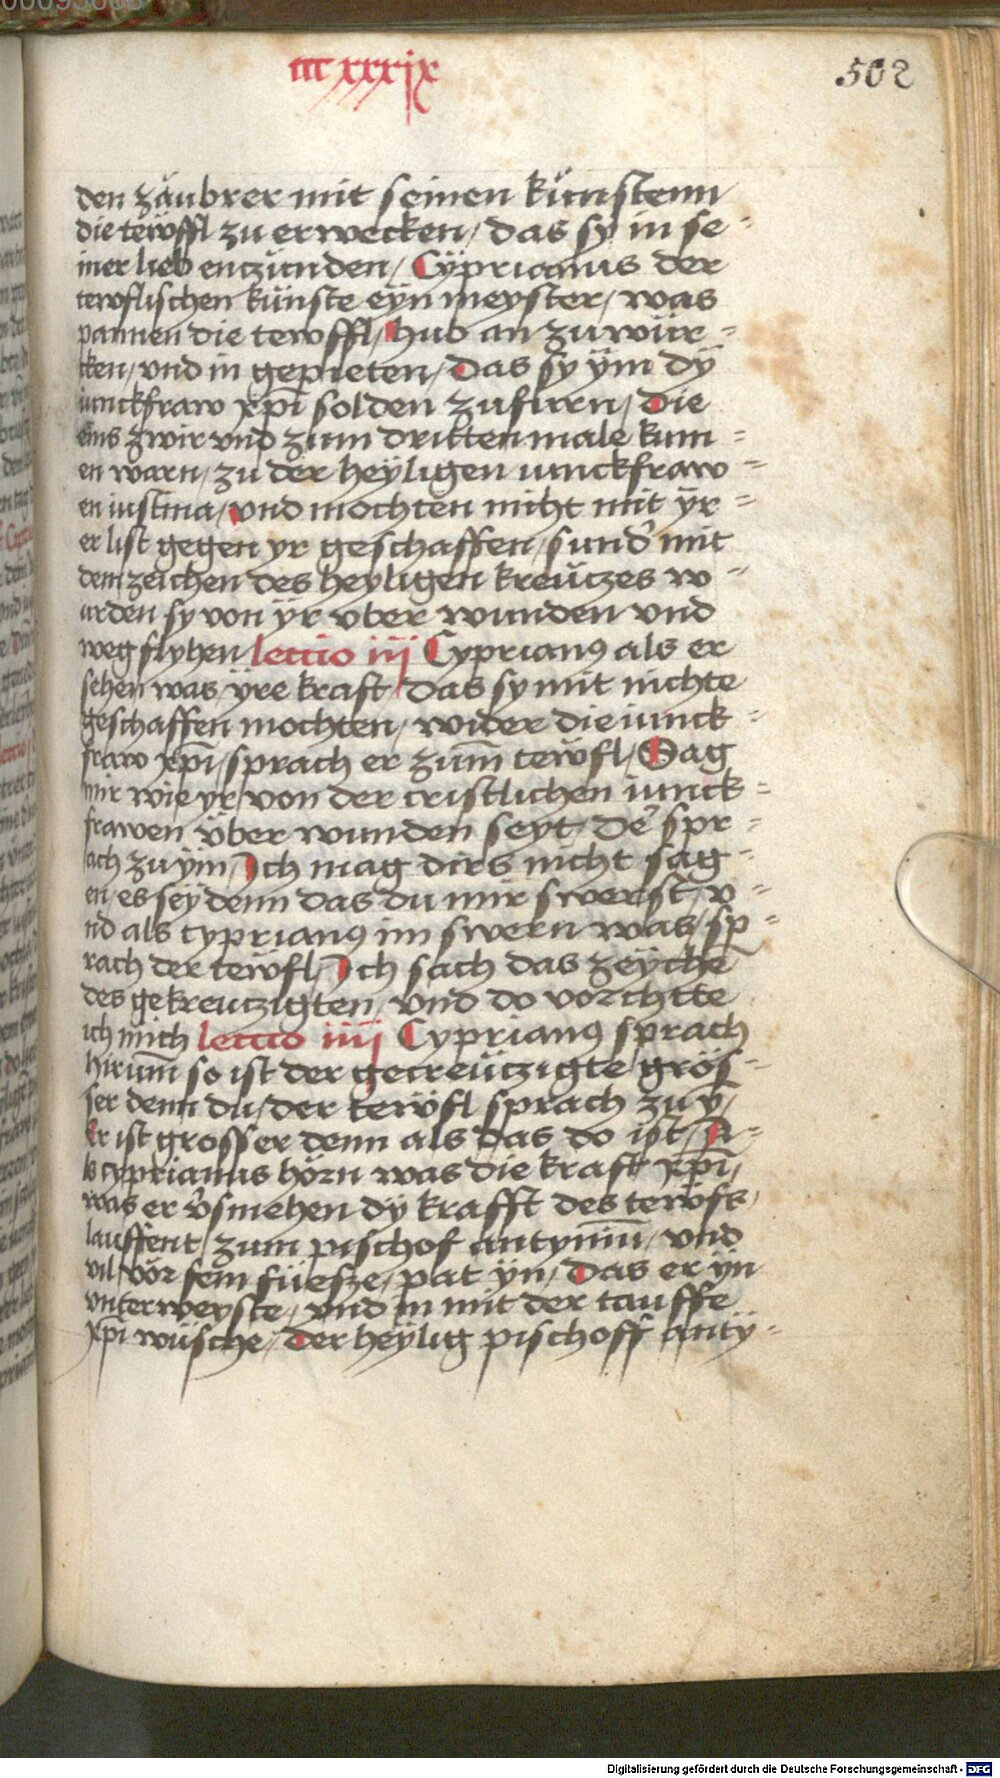 ccc xxxix
502
den zäubrer mit seinen künstenn
die tewffl zu erwecken, das sy in se-
iner lieb enczünden, Cyprianus der
tewflischen künste eyn meyster, was
pannen die tewffl, hub an zu würr-
cken, vnd in gepieten, Das sy ÿm dÿ
iunckfraw xp̄i solden zufürn, Die
eins zwir vnd zum dritten male kum-
en warn, zu der heÿligen iunckfraw-
en iustina, vnd mochten nicht mit yr-
er list gegen yr geschaffen, sund' mit
dem zeichen des heyligen kreüczes w-
urden sy von ÿr vber wunden vnd
weg flyhen lectio iij Cyprianꝰ als er
sehen was, ÿre kraft, das sy mit nichte
geschaffen mochten, wider die iunck-
fraw xp̄i, sprach er zum̄ tewfl, Sag
mir wie yr, von der cristlichen iunck-
frawen über wunden seyt, de' spr-
ach zu ym, Ich mag dirs nicht sag-
en, es seÿ denn das du mir swerst, v-
nd als cyprianꝰ im swern was, sp-
rach der tewfl, Ich sach das zeÿchē
des gekreuczigten, vnd do vorchtte
ich mich lectio iiij Cyprianꝰ sprach
hirum̄ so ist der gecreüczigte grös-
ser denn du, der tewfl sprach zu ÿ,
Er ist grosser denn als das do ist, A-
b cyprianus hörn was die kraft xp̄i,
was er v'smehen dy krafft des tewfls,
lauffent, zum pischof antymiū, vnd
vil, vor sein füesze, pat ÿn, Das er ÿn
vnterweyste, vnd in mit der tauffe
xp̄i wüsche, Der heÿlig pischoff anty-
Digitalisierung gefördert durch die Deutsche Forschungsgemeinschaft - DFG